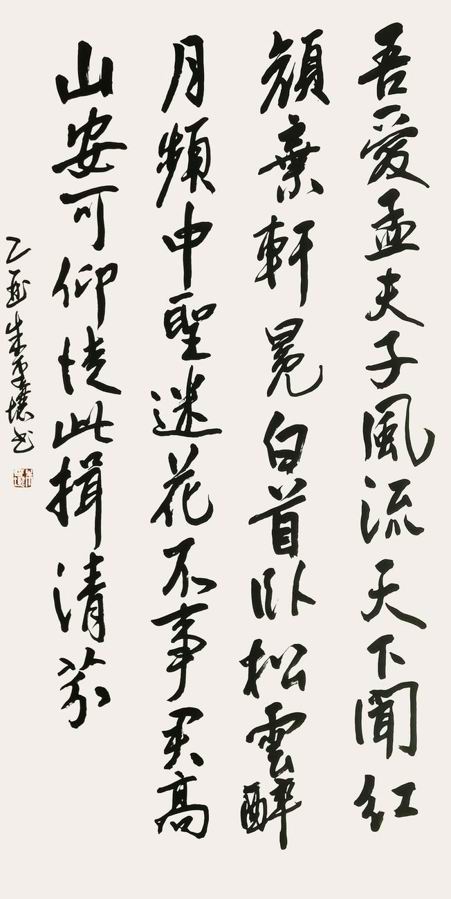 吾愛孟夫子風流天下聞紅
顔棄軒冕白首卧松雲醉
月頻中聖迷花不事君高
山安可仰徒此揖清芬
乙酉朱書